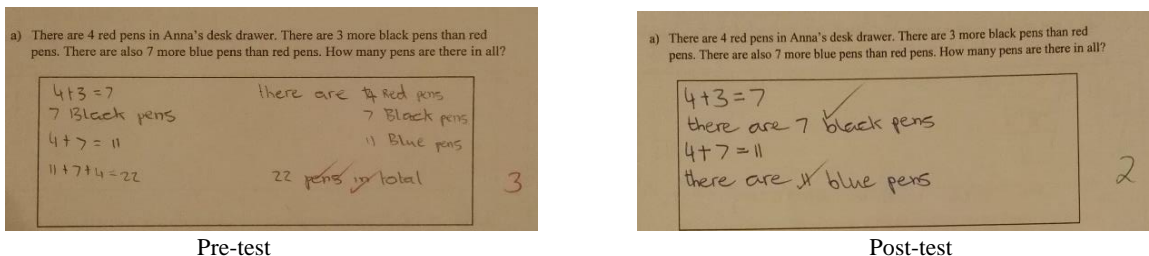 a) There are 4 red pens in Anna's desk drawer. There are 3 more black pens than red
pens. There are also 7 more blue pens than red pens. How many pens are there in all?
4+3=7
7 Black pens
4+7=11
11+7+4=22
there are 4 Red pens
7 Black pens
11 Blue pens
22 pens in total
3
Pre-test
a) There are 4 red pens in Anna's desk drawer. There are 3 more black pens than red
pens. There are also 7 more blue pens than red pens. How many pens are there in all?
4+3=7
there are 7 black pens
4+7=11
there are 11 blue pens
2
Post-test